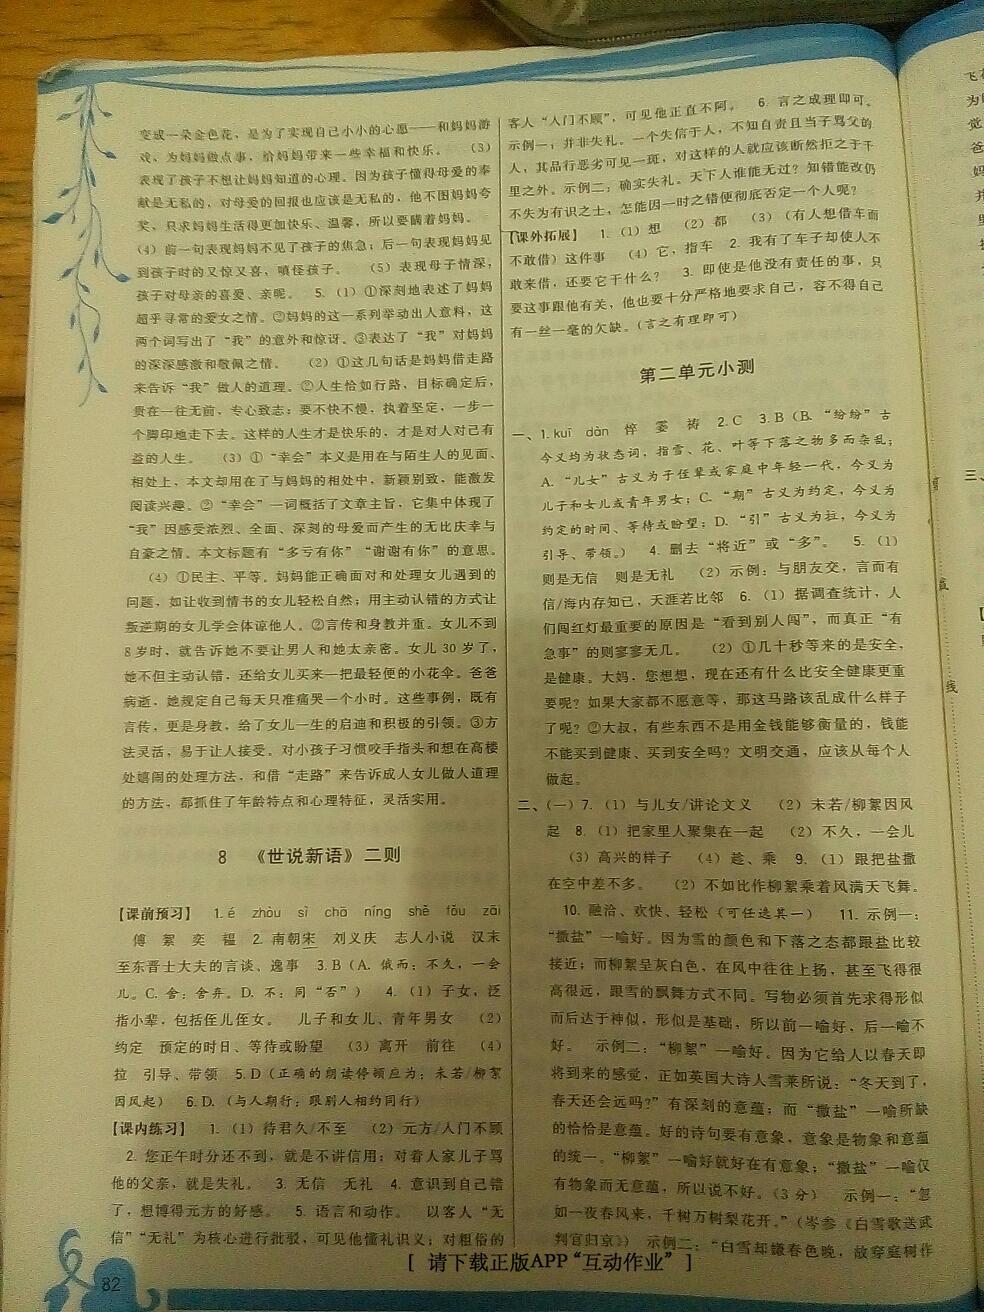 变成一朵金色花，是为了实现自己小小的心愿——和妈妈游
戏，为妈妈做点事，给妈妈带来一些幸福和快乐。 （3）
表现了孩子不想让妈妈知道的心理。因为孩子懂得母爱的奉
献是无私的，对母爱的回报也应该是无私的，他不图妈妈夸
奖，只求妈妈生活得更加快乐、温馨，所以要瞒着妈妈。
（4）前一句表现妈妈不见了孩子的焦急；后一句表现妈妈见
到孩子时的又惊又喜，嗔怪孩子。 （5）表现母子情深，
孩子对母亲的喜爱、亲昵。 5.（1）①深刻地表述了妈妈
超乎寻常的爱女之情。②妈妈的这一系列举动出人意料，这
两个词写出了“我”的意外和惊讶。③表达了“我”对妈妈
的深深感激和敬佩之情。 （2）①这几句话是妈妈借走路
来告诉“我”做人的道理。②人生恰如行路，目标确定后，
贵在一往无前，专心致志；要不快不慢，执着坚定，一步一
个脚印地走下去。这样的人生才是快乐的，才是对人对己有
益的人生。 （3）①“幸会”本义是用在与陌生人的见面、
相处上，本文却用在了与妈妈的相处中，新颖别致，能激发
阅读兴趣。②“幸会”一词概括了文章主旨，它集中体现了
“我”因感受浓烈、全面、深刻的母爱而产生的无比庆幸与
自豪之情。本文标题有“多亏有你”“谢谢有你”的意思。
（4）①民主、平等。妈妈能正确面对和处理女儿遇到的
问题，如让收到情书的女儿轻松自然；用主动认错的方式让
叛逆期的女儿学会体谅他人。②言传和身教并重。女儿不到
8岁时，就告诉她不要让男人和她太亲密。女儿30岁了，
她不但主动认错，还给女儿买来一把最轻便的小花伞。爸爸
病逝，她规定自己每天只准痛哭一个小时。这些事例，既有
言传，更是身教，给了女儿一生的启迪和积极的引领。③方
法灵活，易于让人接受。对小孩子习惯咬手指头和想在高楼
处嬉闹的处理方法，和借“走路”来告诉成人女儿做人道理
的方法，都抓住了年龄特点和心理特征，灵活实用。
8 《世说新语》二则
【课前预习】 1.é zhòu sì chā níng shě fǒu zāi
傅 絮 奕 韫 2.南朝宋 刘义庆 志人小说 汉末
至东晋士大夫的言谈、逸事 3.B（A.俄而：不久，一会
儿。C.舍：舍弃。D.不：同“否”） 4.（1）子女，泛
指小辈，包括侄儿侄女。 儿子和女儿、青年男女 （2）
约定 预定的时日、等待或盼望 （3）离开 前往 （4）
拉 引导、带领 5.D（正确的朗读停顿应为：未若/柳絮
因风起） 6.D.（与人期行：跟别人相约同行）
【课内练习】 1.（1）待君久/不至 （2）元方/入门不顾
2.您正午时分还不到，就是不讲信用；对着人家儿子骂
他的父亲，就是失礼。 3.无信 无礼 4.意识到自己错
了，想博得元方的好感。 5.语言和动作。 以客人“无
信”“无礼”为核心进行批驳，可见他懂礼识义；对粗俗的
客人“入门不顾”，可见他正直不阿。 6.言之成理即可。
示例一：并非失礼。一个失信于人，不知自责且当子骂父的
人，其品行恶劣可见一斑，对这样的人就应该断然拒之于千
里之外。示例二：确实失礼。天下人谁能无过？知错能改仍
不失为有识之士，怎能因一时之错便彻底否定一个人呢？
【课外拓展】 1.（1）想 （2）都 （3）（有人想借车而
不敢借）这件事 （4）它，指车 2.我有了车子却使人不
敢来借，还要它干什么？ 3.即使是他没有责任的事，只
要这事跟他有关，他也要十分严格地要求自己，容不得自己
有一丝一毫的欠缺。（言之有理即可）
第二单元小测
一、1.kuī dàn 悴 霎 祷 2.C 3.B（B.“纷纷”古
今义均为状态词，指雪、花、叶等下落之物多而杂乱；
A.“儿女”古义为子侄辈或家庭中年轻一代，今义为
儿子和女儿或青年男女；C.“期”古义为约定，今义为
约定的时间、等待或盼望；D.“引”古义为拉，今义为
引导、带领。） 4.删去“将近”或“多”。 5.（1）
则是无信 则是无礼 （2）示例：与朋友交，言而有
信/海内存知己，天涯若比邻 6.（1）据调查统计，人
们闯红灯最重要的原因是“看到别人闯”，而真正“有
急事”的则寥寥无几。 （2）①几十秒等来的是安全，
是健康。大妈，您想想，现在还有什么比安全健康更重
要呢？如果大家都不愿意等，那这马路该乱成什么样子
了呢？②大叔，有些东西不是用金钱能够衡量的，钱能
不能买到健康、买到安全吗？文明交通，应该从每个人
做起。
二、（一）7.（1）与儿女/讲论文义 （2）未若/柳絮因风
起 8.（1）把家里人聚集在一起 （2）不久，一会儿
（3）高兴的样子 （4）趁、乘 9.（1）跟把盐撒
在空中差不多。 （2）不如比作柳絮乘着风满天飞舞。
10.融洽、欢快、轻松（可任选其一） 11.示例一：
“撒盐”一喻好。因为雪的颜色和下落之态都跟盐比较
接近；而柳絮呈灰白色，在风中往往上扬，甚至飞得很
高很远，跟雪的飘舞方式不同。写物必须首先求得形似
而后达于神似，形似是基础，所以前一喻好，后一喻不
好。 示例二：“柳絮”一喻好。因为它给人以春天即
将到来的感觉，正如英国大诗人雪莱所说：“冬天到了，
春天还会远吗？”有深刻的意蕴；而“撒盐”一喻所缺
的恰恰是意蕴。好的诗句要有意象，意象是物象和意蕴
的统一。“柳絮”一喻好就好在有意象；“撒盐”一喻仅
有物象而无意蕴，所以说不好。（3分） 示例一：“忽
如一夜春风来，千树万树梨花开。”（岑参《白雪歌送武
判官归京》） 示例二：“白雪却嫌春色晚，故穿庭树作
82
[ 请下载正版APP“互动作业” ]
线
三、